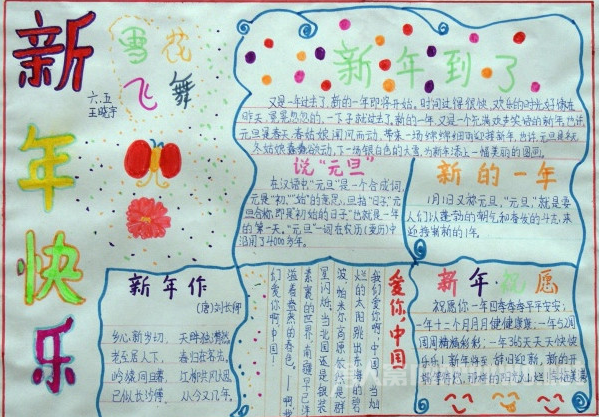 新年快乐
雪花
飞舞
六.五
王晓宇
新年到了
又是一年过去了,新的一年即将开始。时间过得很快,欢乐的时光好像在
昨天,
一下子就过去了。新的一年,又是一个充满欢声笑语的新年。也许,
元旦是春天,春姑娘闻风而动,带来一场绵绵细雨迎接新年。也许,元旦是冬天,
冬姑娘
下一场银白色的大雪,为新年添上一幅美丽的图画。
说“元旦”
在汉语中“元旦”是一个合成词,
元是“初”“始”的意思,旦指“日子”元
旦合称,即是“初始的日子”也就是一年
的第一天。“元旦”一词在农历(夏历)中
沿用了4000多年。
新的一年
1月1日又称元旦,“元旦,”就是要
人们以蓬勃的朝气和奋发的斗志来
迎接崭新的1年。
新年作
(唐)刘长卿
乡心新岁切, 天畔独潸然。
老至居人下, 春归在客先。
岭猿同旦暮, 江柳共风烟。
已似长沙傅, 从今又几年。
爱你,中国
我们爱你啊,中国,当灿
烂的太阳跳出东海的碧
波,帕米尔高原依然是群
星闪烁,当北国还是银装
素裹的世界,南疆早已洋
溢着盎然的春色。——啊,我
们爱你啊,中国!
新年祝愿
祝愿你一年四季季季平平安安;
一年十二个月月月健健康康;一年52周
周周精精彩彩;一年365天天天快快
乐乐!新年将至,辞旧迎新,新的开